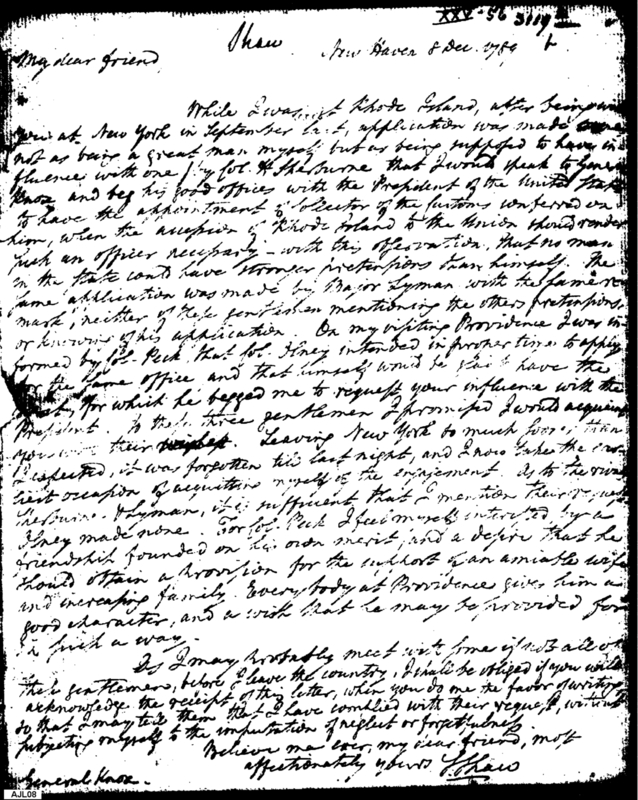 XXV-56 3119
Shaw
New Haven 8 Dec. 1789
My dear friend,
While I was at Rhode Island, after being
at New York in September last, application was made
not as being a great man myself but as being supposed to have in-
fluence with one by Col. H Sherburne that I would speak to General
Knox and beg his good offices with the President of the United States
to have the appointment of Collector of the customs conferred on
him, when the accession of Rhode Island to the Union should render
such an officer necessary – with this observation, that no man
in the State could have stronger pretensions than himself. The
same application was made by Major Lyman with the same re-
mark, neither of these gentlemen mentioning the others pretensions,
or knowing of his application. On my visiting Providence I was in-
formed by Col. Peck that Col. Olney intended in proper time to apply
for the same office and that himself would be glad to have the
for which he begged me to request your influence with the
President. To these three gentlemen I promised I would acquaint
you with their. Leaving New York so much sooner than
I expected, it was forgotten till last night, and I now take the ear-
liest occasion of acquitting myself of the engagement. As to the
Sherburne & Lyman, it is sufficient that I mention their request
Olney made none. For Col. Peck I feel myself interested by a
friendship founded on his own merit, and a desire that he
should obtain a provision for the support of an amiable wife
and increasing family. Every body at Providence gives him a
good character, and a wish that he may be provided for
in such a way.
As I may probably meet with some if not all of
these gentlemen, before I leave the country, I shall be obliged if you will
acknowledge the receipt of this letter, when you do me the favor of writing
so that I may tell them that I have complied with their request, without
subjecting myself to the imputation of neglect or forgetfulness.
Believe me ever, my dear friend, most
affectionately yours S Shaw
General Knox.
AJL08